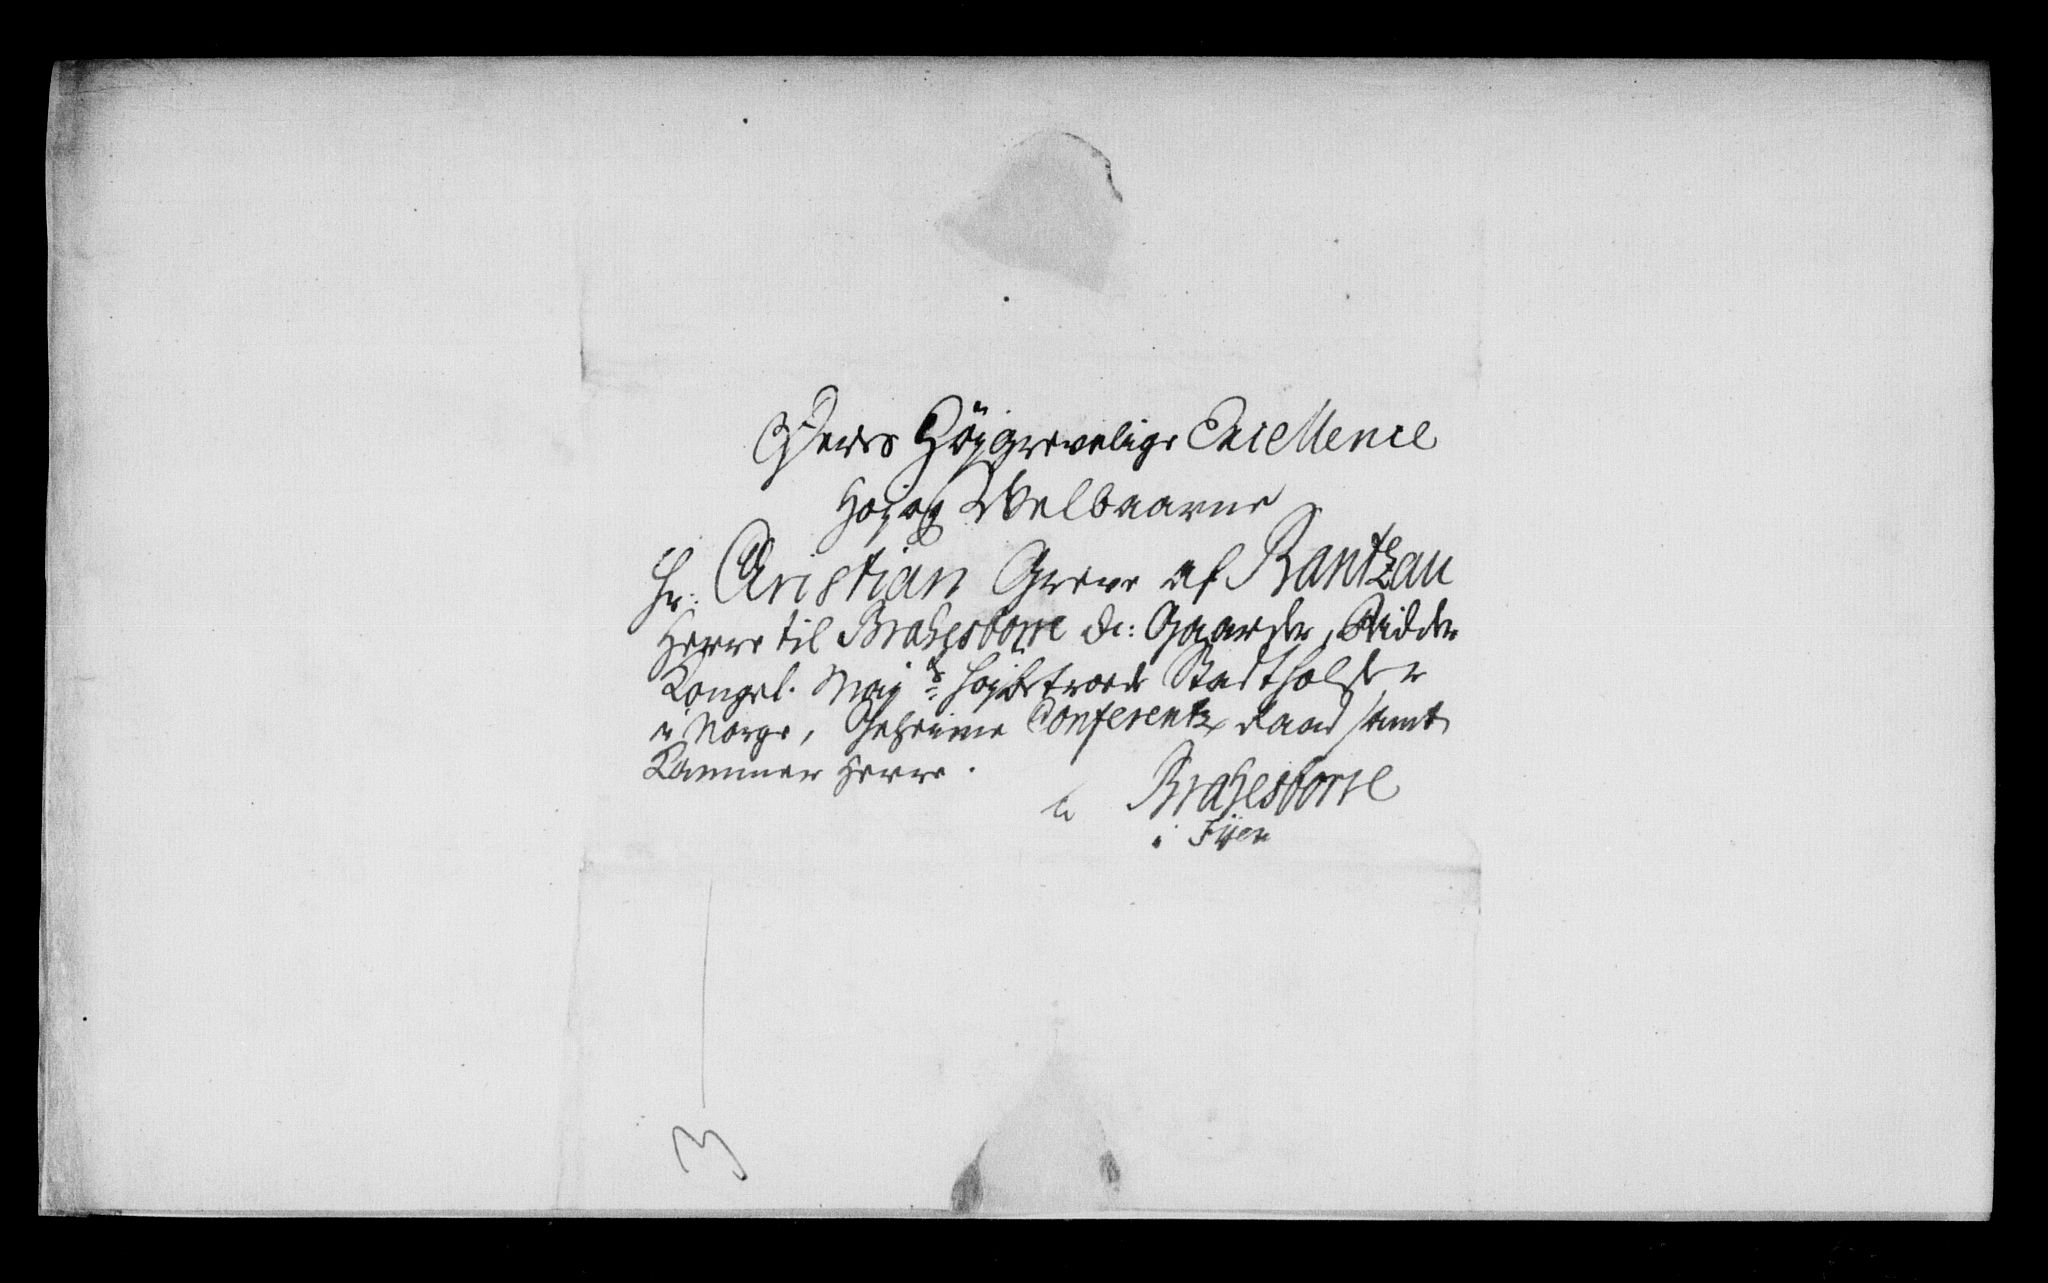 Deres Höÿgrevelige Excellence
Høj og Welbaarne
Hr: Christian Greve af Rantzau
Herre til Brahesborre &c: Gaarder, Ridder
Kongel. Maj:ts højbetroede Stadtholder
i Norge, Geheime Conferentz Raad samt
Kammer Herre.
a Brahesborre
i Fÿen
3